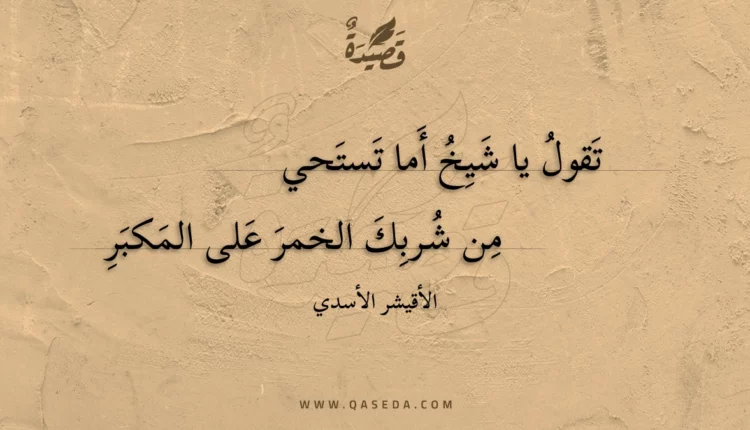 قَصِيدَةٌ
تَقولُ يا شَيخُ أَما تَستَحي
مِن شُربِكَ الخمرَ عَلى المَكبَرِ
الأقيشر الأسدي
WWW.QASEDA.COM